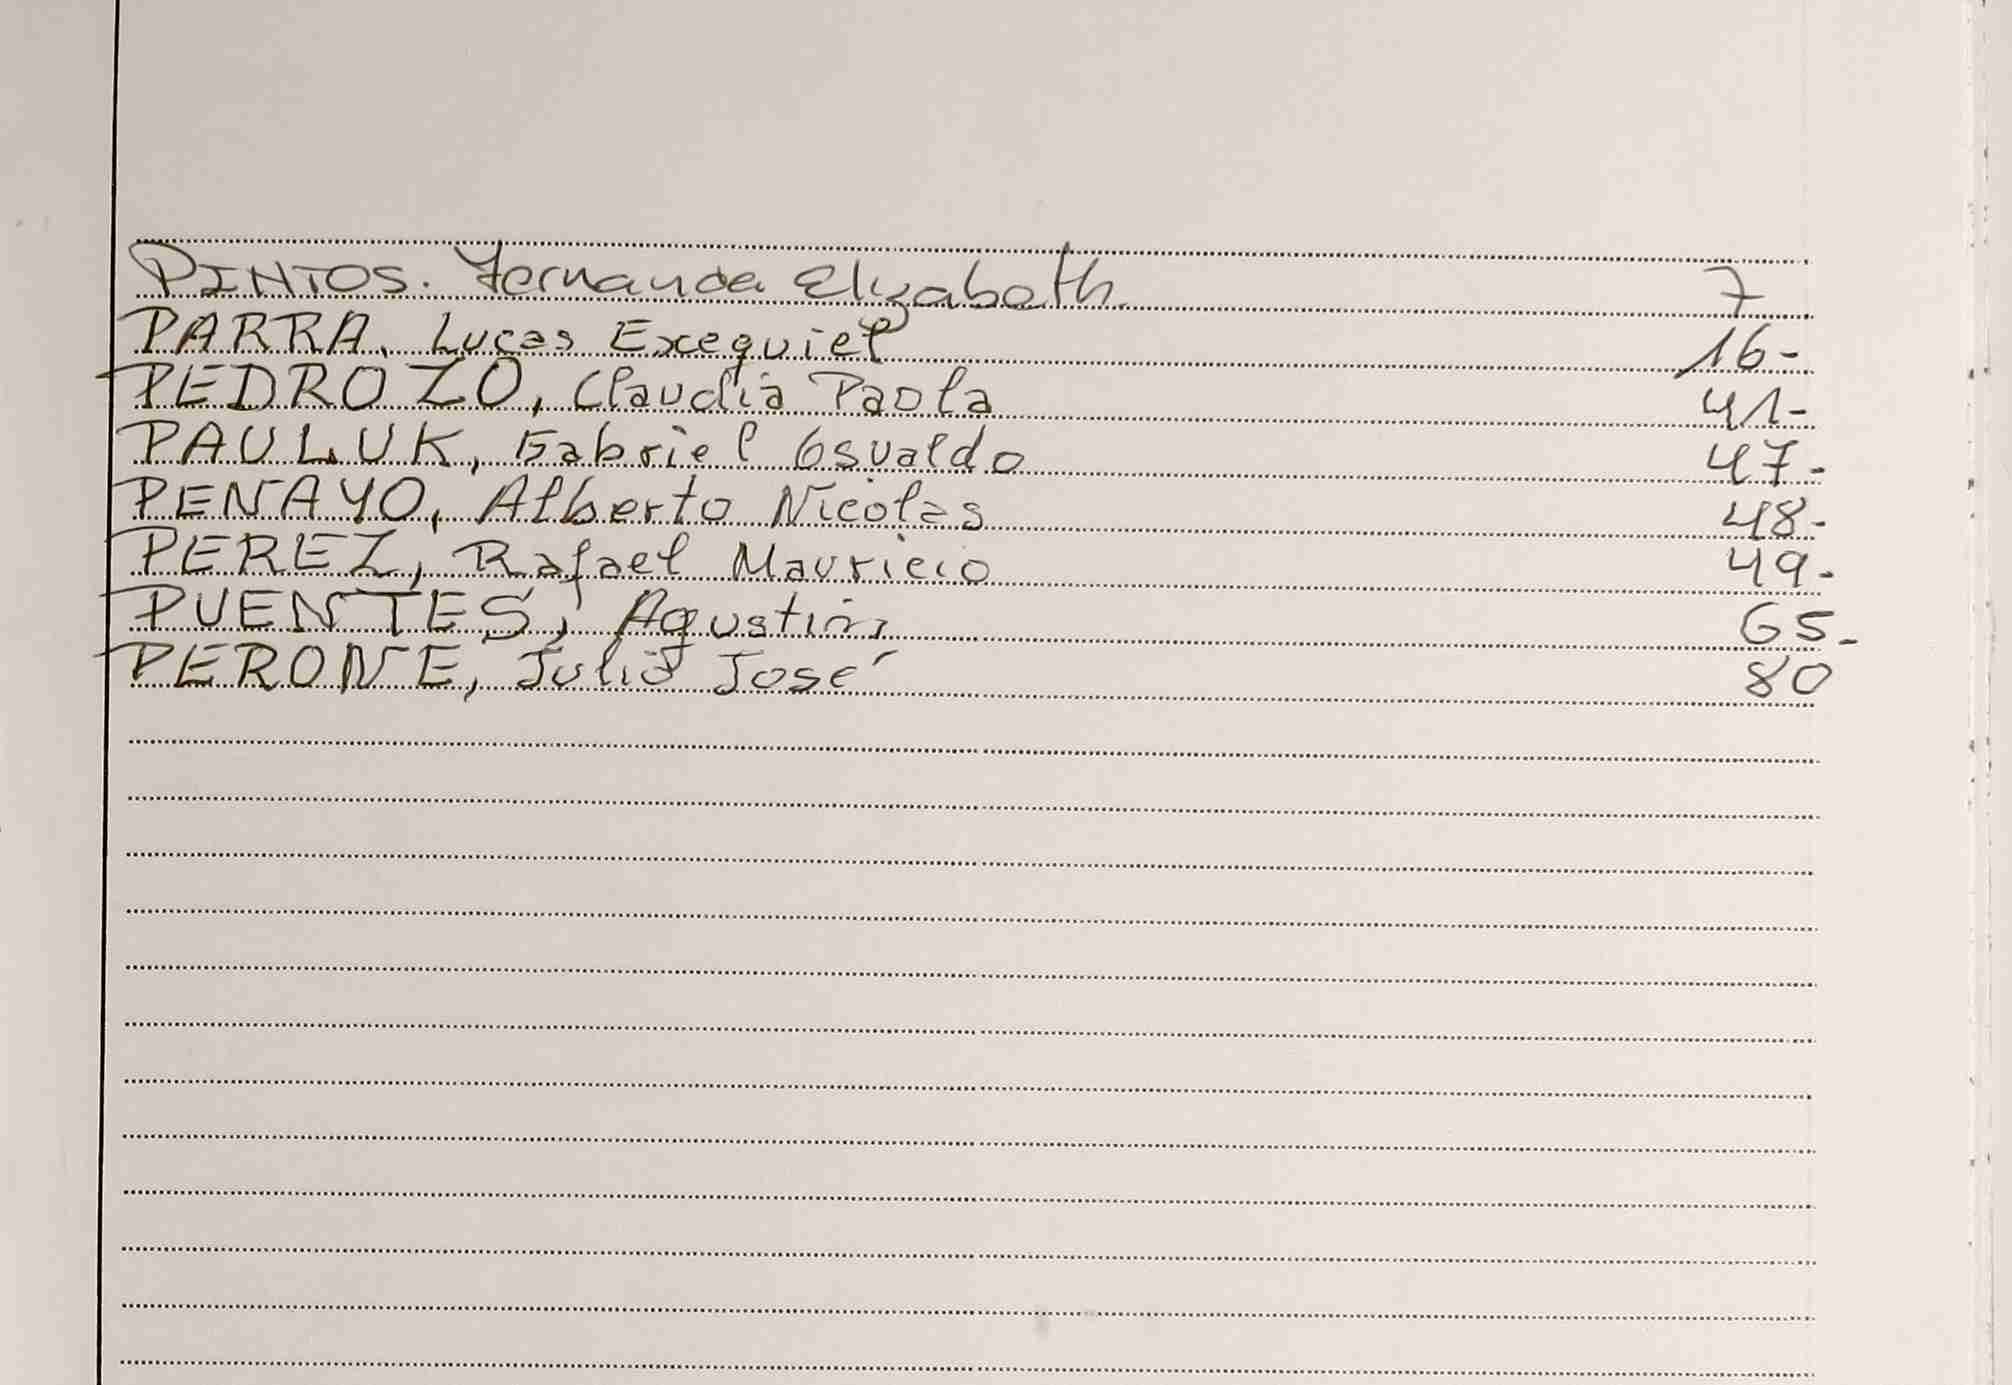 PINTOS. Fernanda Elizabeth 7
PARRA, Lucas Exequiel 16-
PEDROZO, Claudia Paola 41-
PAULUK, Gabriel Osvaldo 47-
PENAYO, Alberto Nicolas 48-
PEREZ, Rafael Mauricio 49-
PUENTES, Agustin, 65-
PERONE, Julio José 80